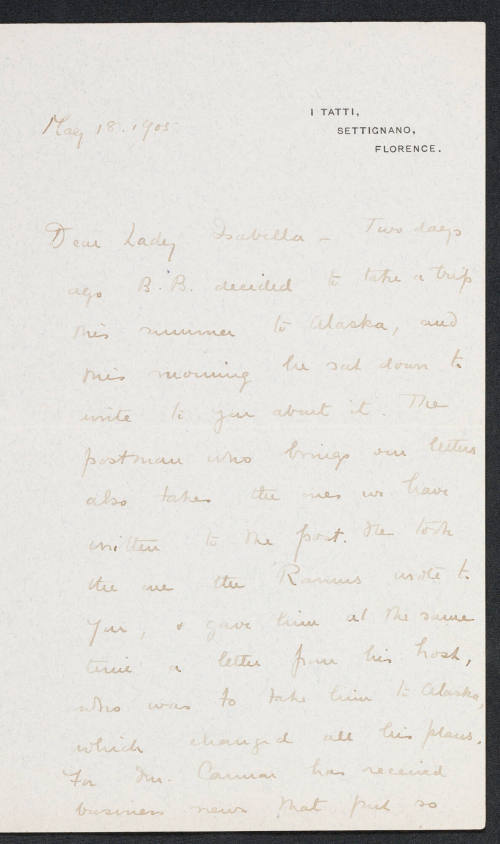 I TATTI,
SETTIGNANO,
FLORENCE.
May 18. 1905
Dear Lady Isabella – Two days
ago B. B. decided to take a trip
this summer to Alaska, and
this morning he sat down to
write to you about it. The
postman who brings our letters
also takes the ones we have
written to the post. He took
the one the wrote to
you, & gave him at the same
time a letter from his host,
who was to take him to Alaska,
which changed all his plans.
For Mr. has received
business news that put so